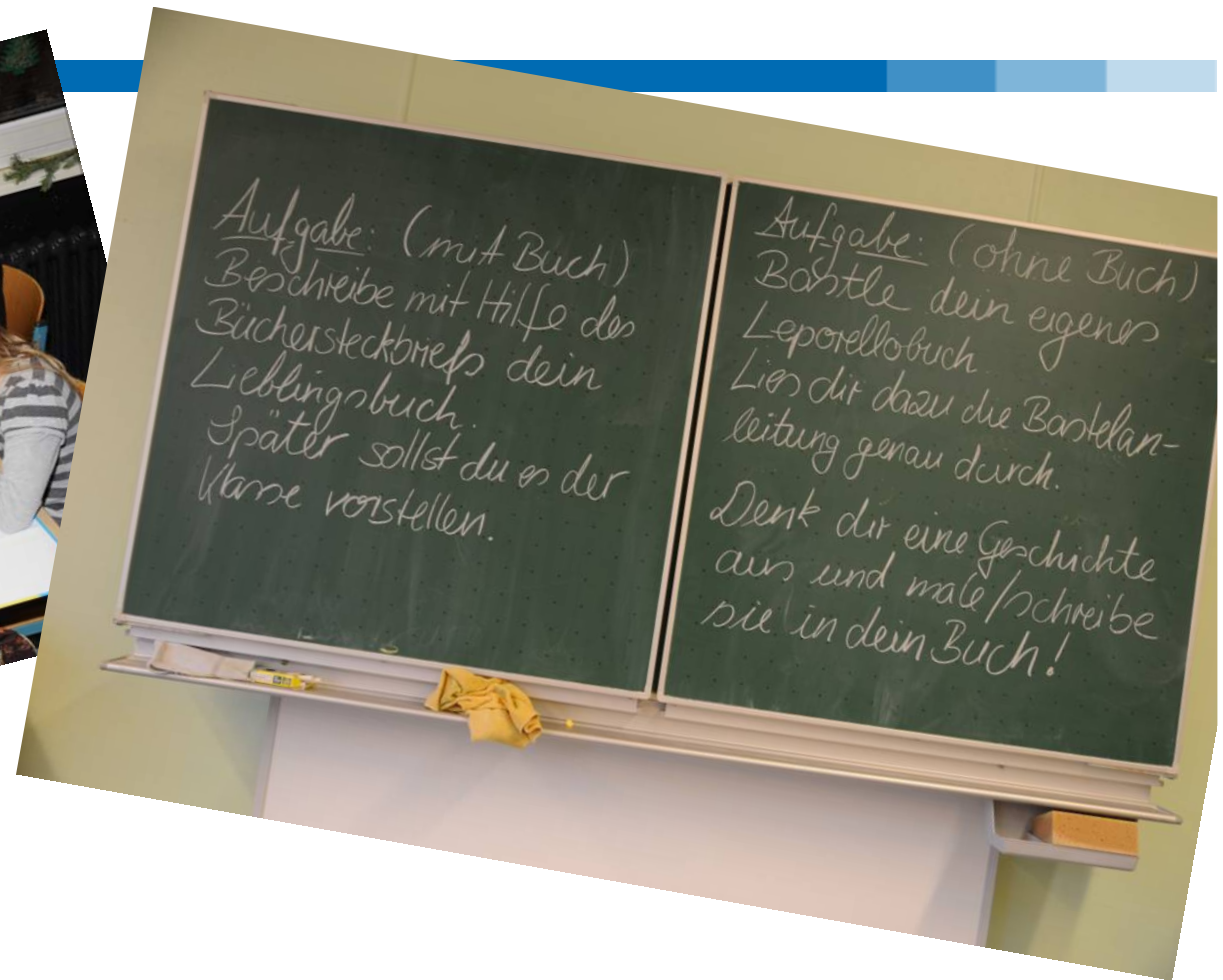 Aufgabe: (mit Buch)
Beschreibe mit Hilfe des
Büchersteckbriefs dein
Lieblingsbuch.
Später sollst du es der
Klasse vorstellen.
Aufgabe: (ohne Buch)
Bastle dein eigenes
Leporellobuch.
Lies dir dazu die Bastelan-
leitung genau durch.
Denk dir eine Geschichte
aus und male/schreibe
sie in dein Buch!